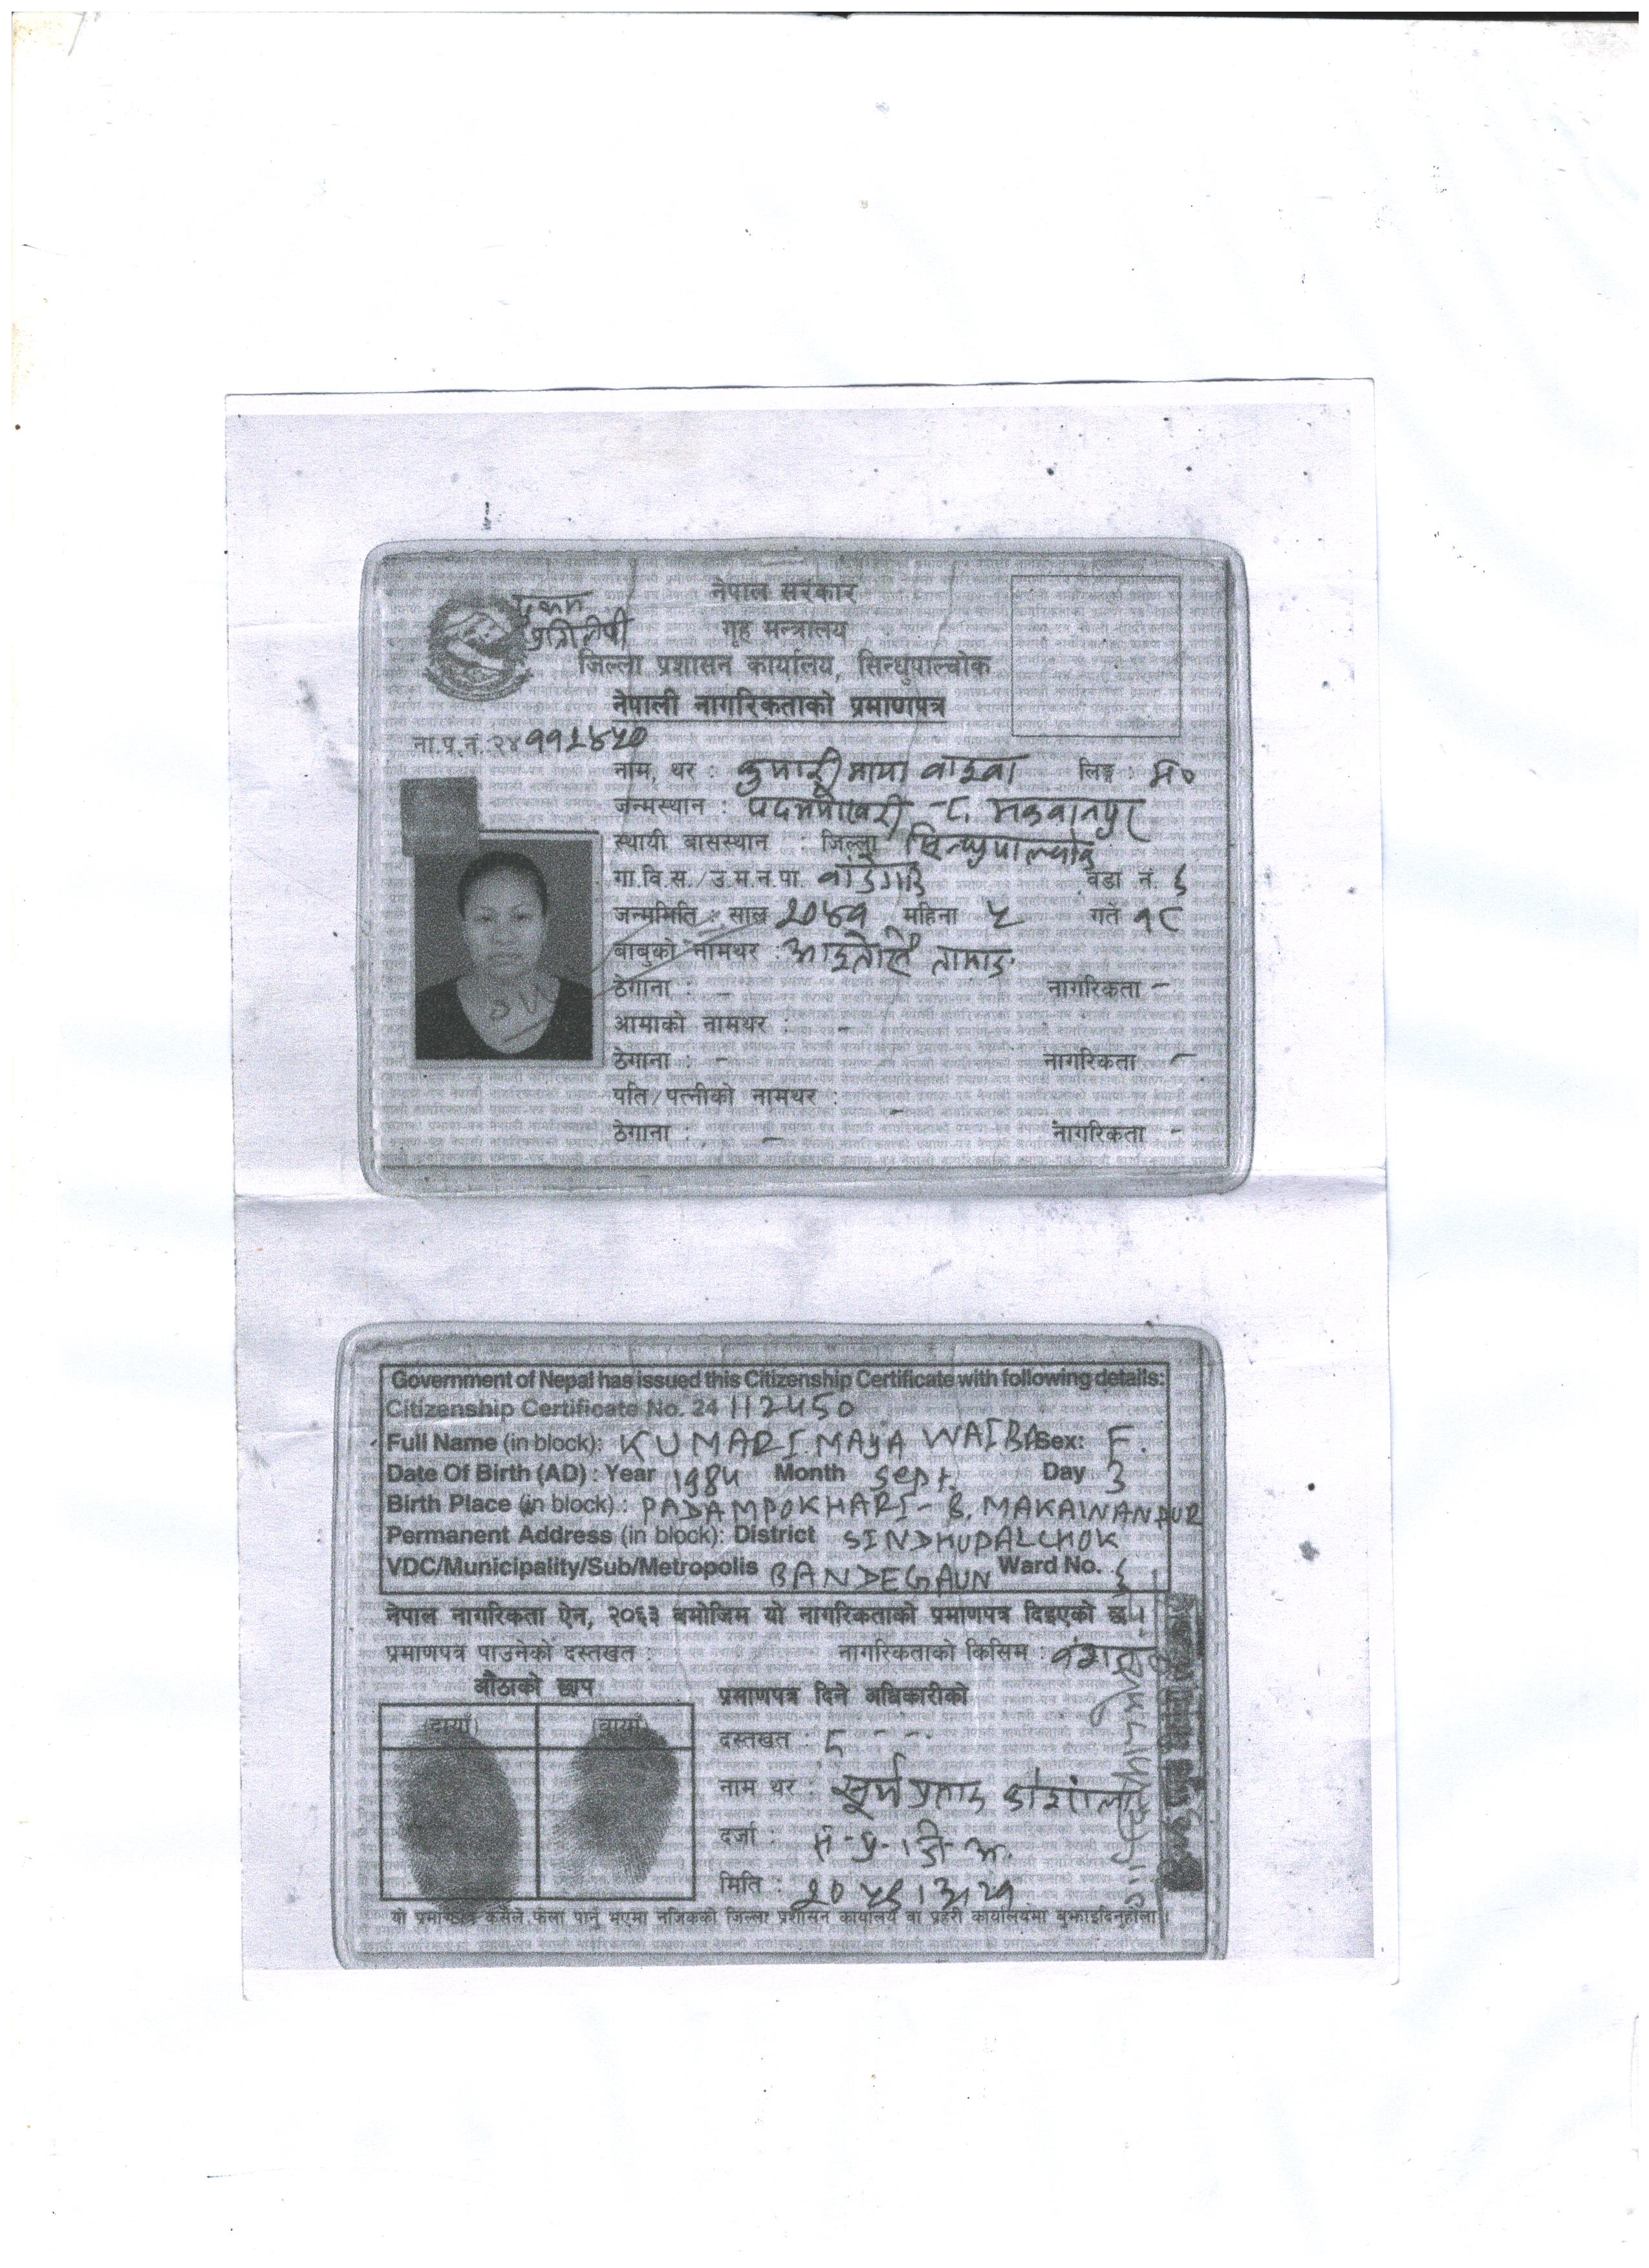 नेपाल सरकार
प्रतिलिपी
गृह मन्त्रालय
जिल्ला प्रशासन कार्यालय, सिन्धुपाल्चोक
नेपाली नागरिकताको प्रमाणपत्र
ना.प.न. २४ ११२४५०
नाम, थर : कुमारी माया वाइवा लिङ्ग : म०
जन्मस्थान : पदमपोखरी -८, मकवानपुर
स्थायी बासस्थान : जिल्ला सिन्धुपाल्चोक
गा.वि.स./उ.म.न.पा. बाँडेगाउँ वडा नं. ६
जन्ममिति : साल २०४१ महिना ५ गते १८
बाबुको नामथर : तामाङ
ठेगाना : - नागरिकता -
आमाको नामथर : -
ठेगाना : - नागरिकता -
पति/पत्नीको नामथर : -
ठेगाना : - नागरिकता -
Government of Nepal has issued this Citizenship Certificate with following details:
Citizenship Certificate No. 24 112450
Full Name (in block): KUMARI MAYA WAIBA Sex: F.
Date Of Birth (AD) : Year 1984 Month Sept. Day 3
Birth Place (in block) : PADAMPOKHARI - 8, MAKAWANPUR
Permanent Address (in block): District SINDHUPALCHOK
VDC/Municipality/Sub/Metropolis BANDEGAUN Ward No. ६
नेपाल नागरिकता ऐन, २०६३ बमोजिम यो नागरिकताको प्रमाणपत्र दिइएको छ ।
प्रमाणपत्र पाउनेको दस्तखत : नागरिकताको किसिम : वंशज
औंठाको छाप प्रमाणपत्र दिने अधिकारीको
(दायाँ) (बायाँ)
दस्तखत :
नाम थर : सूर्य प्रसाद
दर्जा : स.प्र.जि.अ.
मिति :
यो प्रमाणपत्र कसैले फेला पार्नु भएमा नजिकको जिल्ला प्रशासन कार्यालय वा प्रहरी कार्यालयमा बुझाइदिनुहोला ।